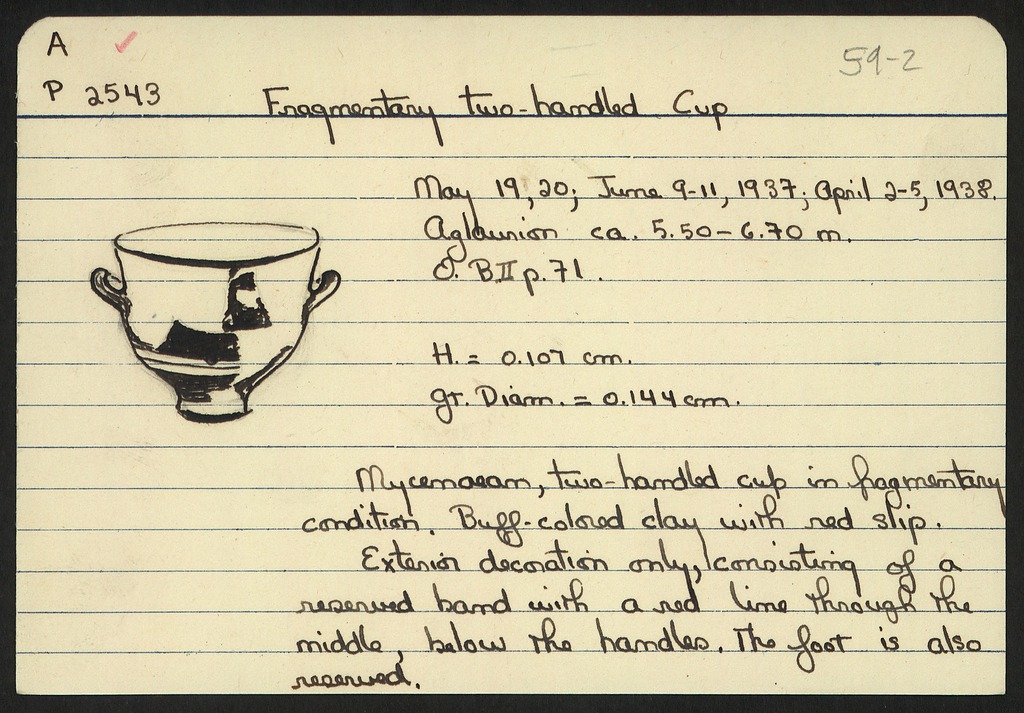 A
59-2
P 2543
Fragmentary two-handled Cup
May 19, 20; June 9-11, 1937; April 2-5, 1938.
Aglaurion ca. 5.50-6.70 m.
O. B II p. 71.
H. = 0.107 cm.
gr. Diam. = 0.144 cm.
Mycenaean, two-handled cup in fragmentary
condition. Buff-colored clay with red slip.
Exterior decoration only, consisting of a
reserved band with a red line through the
middle, below the handles. The foot is also
reserved.